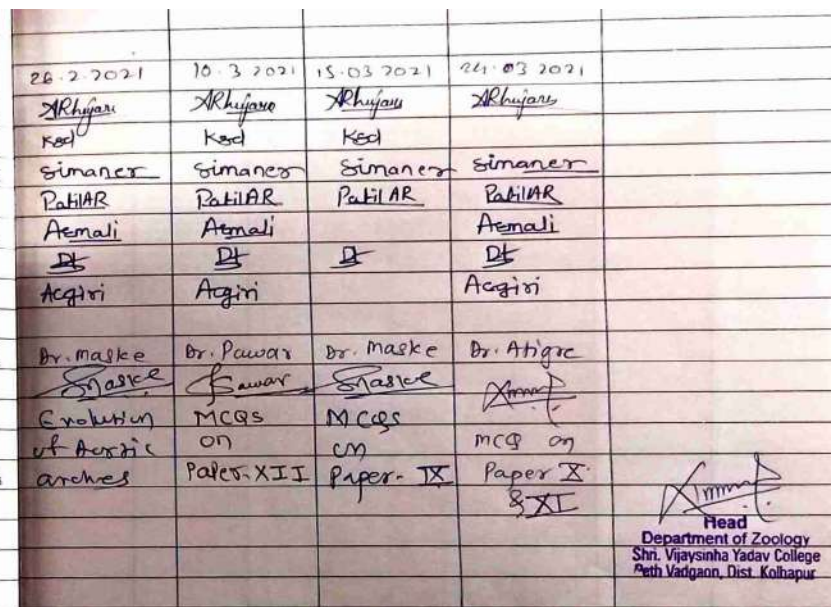 26.2.2021 10.3 2021 15.03 2021 24.03 2021
ARhujare ARhujare ARhujare ARhujare
Ksd Ksd Ksd
simaner simaner simaner simaner
PatilAR PatilAR Patil AR PatilAR
Asmali Asmali Asmali
Acgiri Acgiri Acgiri
Dr. Maske Dr. Pawar Dr. Maske Dr. Atigre
Smaske Pawar Smaske
Evolution MCQS MCQS
of Aortic on on MCQ on
arches Paper-XII Paper-IX Paper X
& XI
Head
Department of Zoology
Shri. Vijaysinha Yadav College
Peth Vadgaon, Dist. Kolhapur